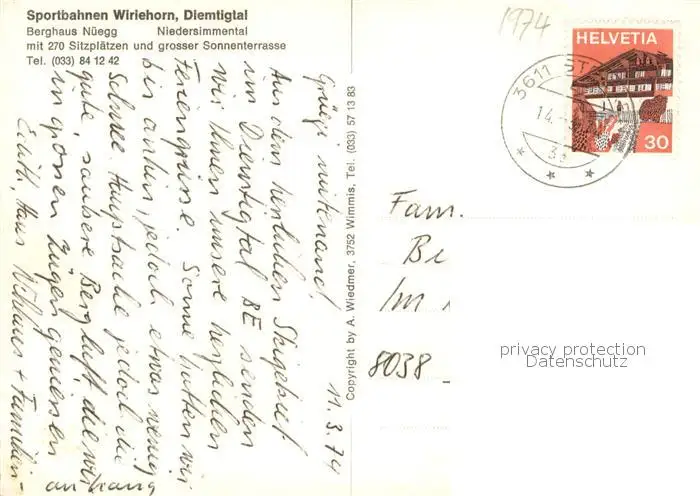 Sportbahnen Wiriehorn, Diemtigtal
Berghaus Nüegg Niedersimmental
mit 270 Sitzplätzen und grosser Sonnenterrasse
Tel. (033) 84 12 42
11. 3. 74
Grüezi mitenand,
Aus dem herrlichen Skigebiet
im Diemtigtal BE senden
wir Ihnen unsere herzlichen
Feriengrüsse. Sonne hatten wir
bis anhin, jedoch etwas wenig
Schnee. Hauptsache jedoch die
gute, saubere Bergluft, die wir
in grossen Zügen geniessen
Edith, Hans + Familien-
anhang
Copyright by A. Wiedmer, 3752 Wimmis, Tel. (033) 57 13 83
1974
HELVETIA
30
3611
14.
Fam.
Be
Im
8038
privacy protection
Datenschutz